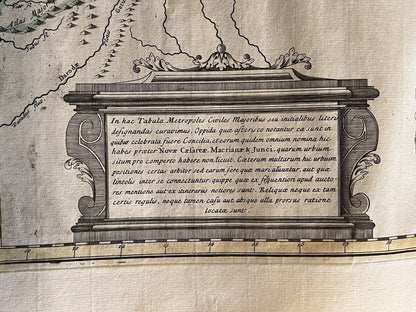 Atlas Major
Daradæ
In hac Tabula Metropoles Civiles Majoribus seu initialibus literis
designandas curavimus; Oppida quæ asterisco notantur ea sunt in
quibus celebrata fuere Concilia, et eorum quidem omnium nomina hic
habes præter Novæ Cæsareæ, Macrianæ & Junci, quarum urbium
situm pro comperto habere non licuit. Cæterum multarum hic urbium
positiones certas arbitror sed earum fere quæ mari alluuntur, aut quæ
lineolis inter se connectuntur quippe quæ ex frequentiori apud aucto-
res mentione aut ex itinerariis notiores sunt. Reliquæ neque ex tam
certis regulis, neque tamen casu aut absque ulla prorsus ratione
locatæ sunt.